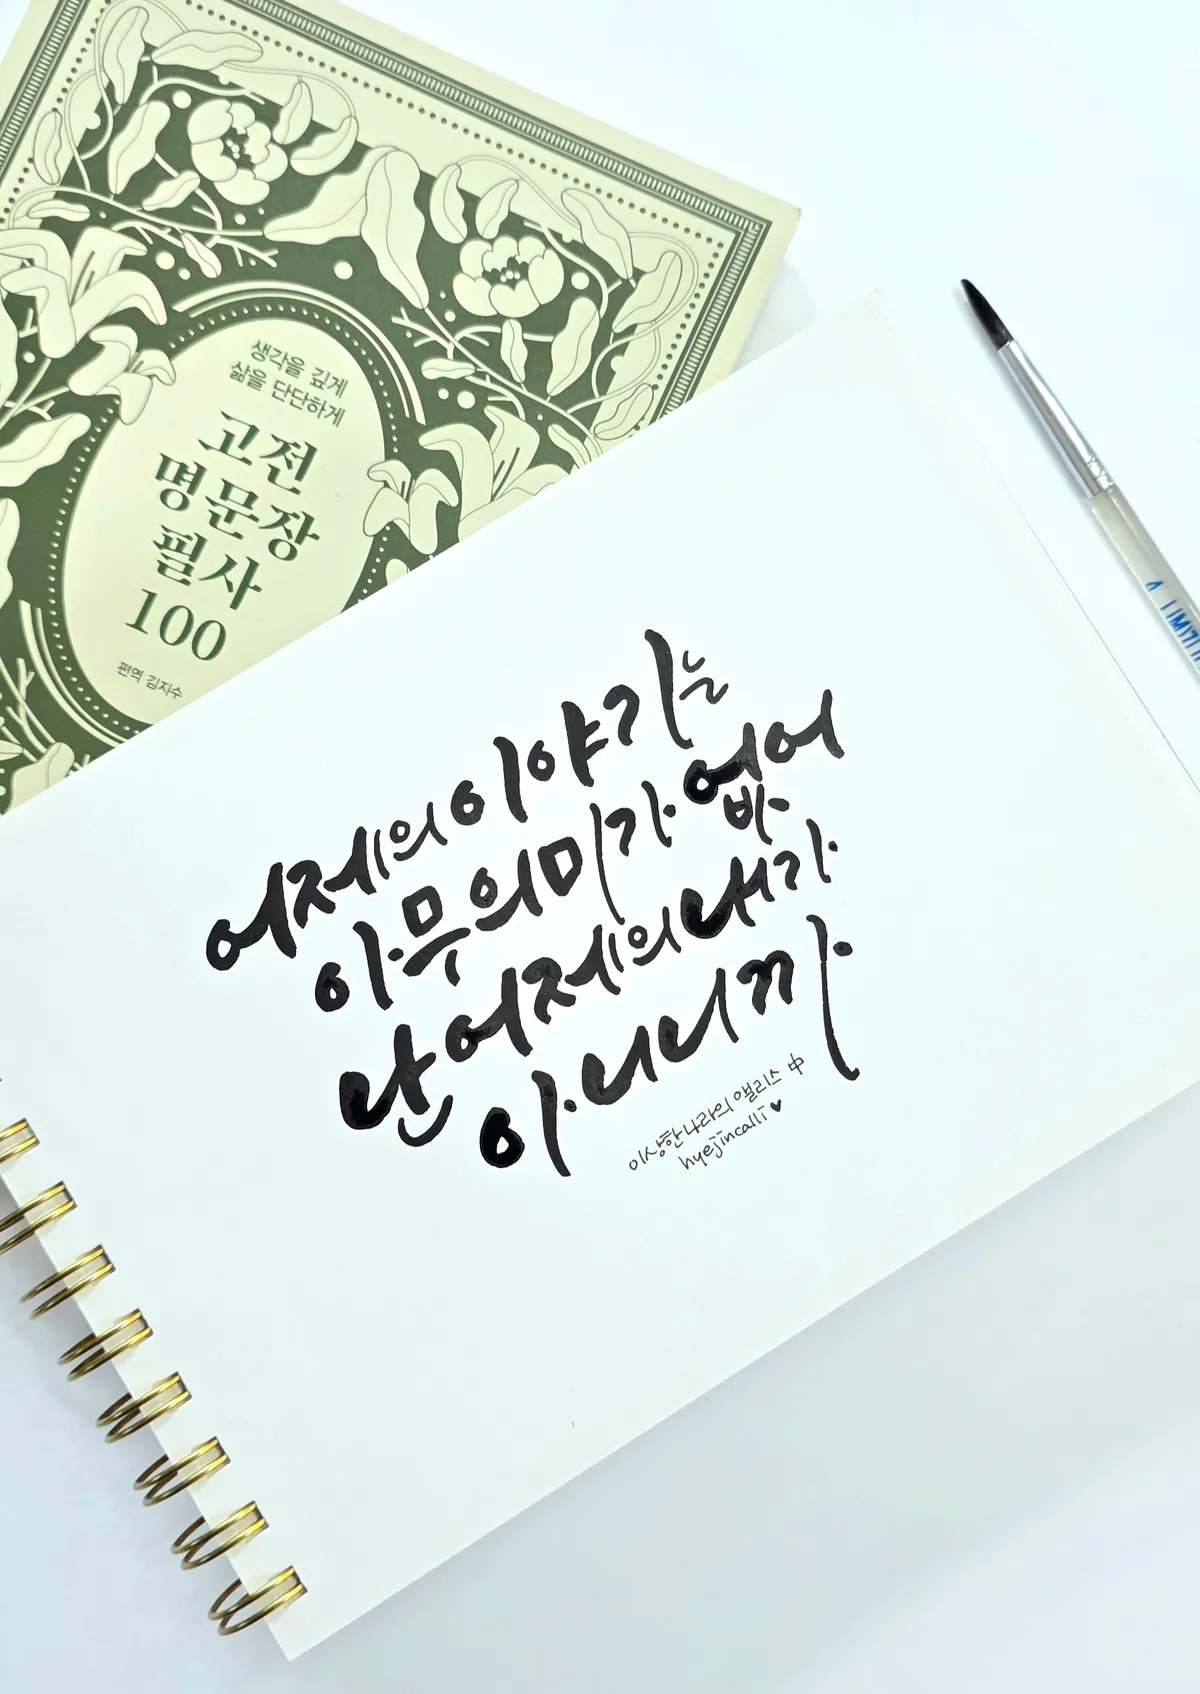 생각을 깊게
삶을 단단하게
고전
명문장
필사
100
편역 김지수
어제의 이야기는
아무 의미가 없어
난 어제의 내가
아니니까
이상한 나라의 앨리스 中
hyejincalli ♥